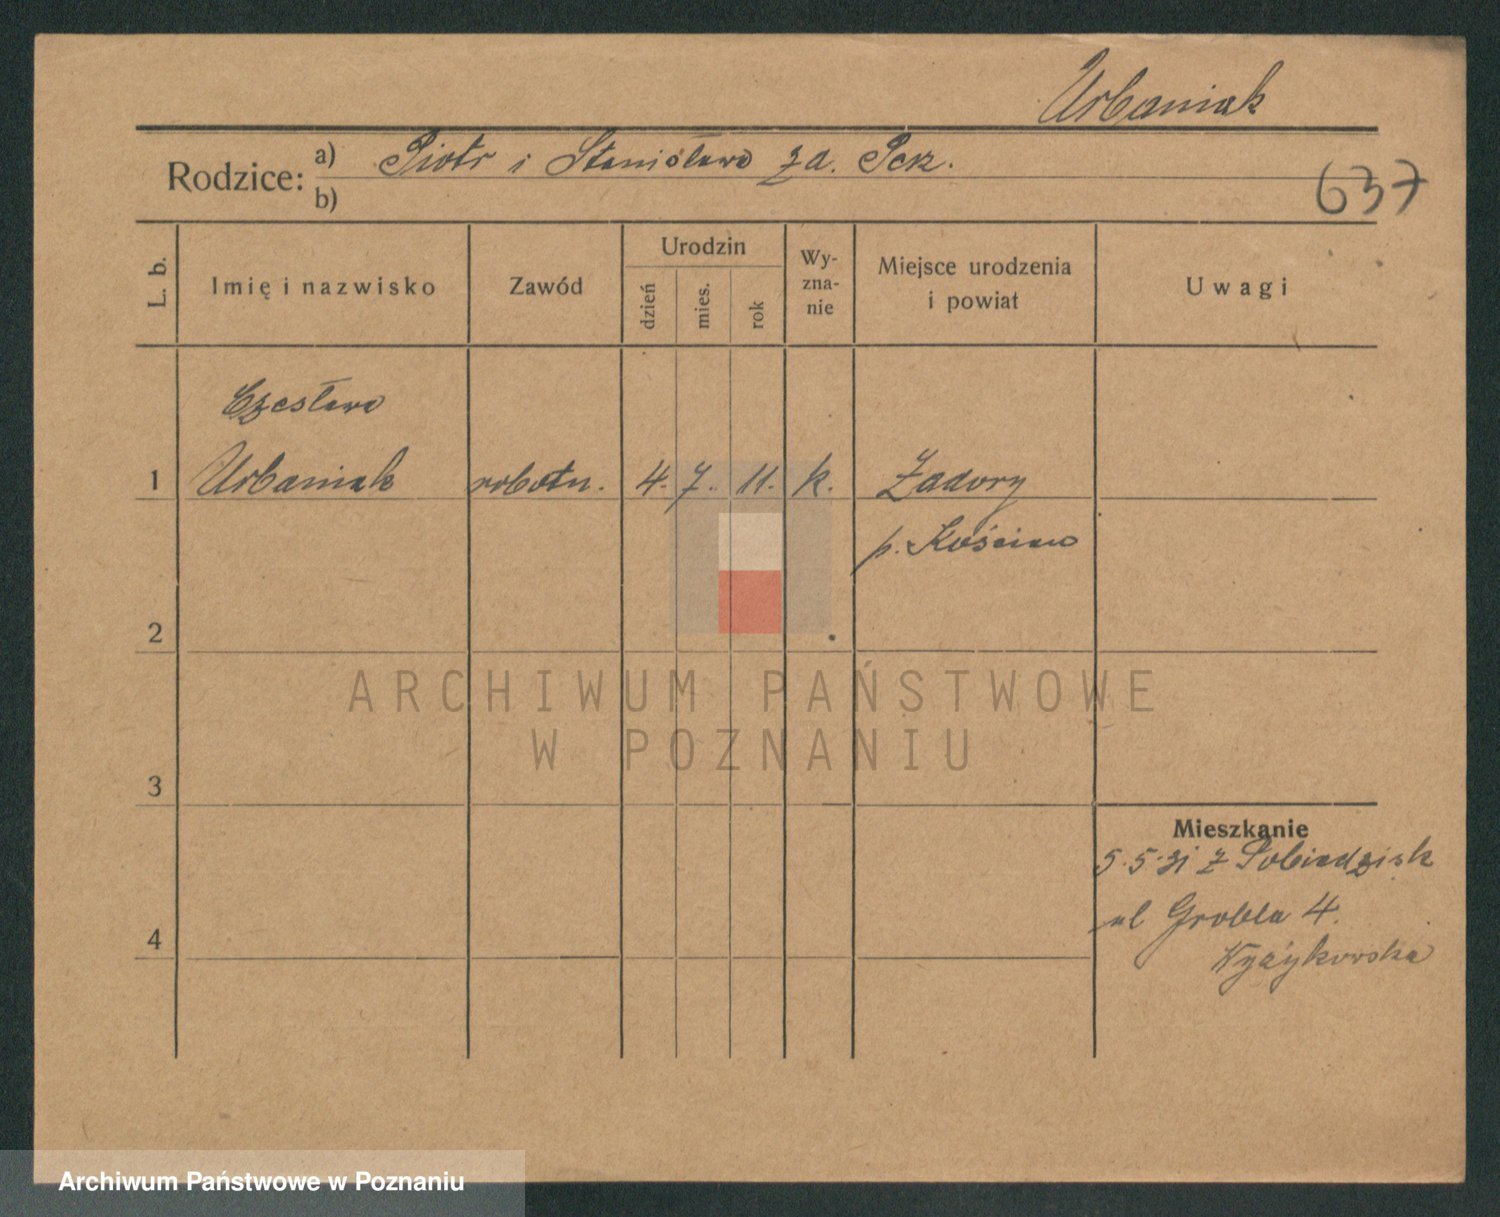 Urbaniak
Rodzice: a) Piotr i Stanisława za. Perz.
b)
637
L. b.
Imię i nazwisko
Zawód
Urodzin
dzień
mies.
rok
Wy-
zna-
nie
Miejsce urodzenia
i powiat
Uwagi
Czesława
1 Urbaniak robotn. 4. 7. 11. k. Zadory
p. Kościan
2
ARCHIWUM PAŃSTWOWE
W POZNANIU
3
Mieszkanie
5.5.31 z
ul Grobla 4.
4
Wyżykowska
Archiwum Państwowe w Poznaniu